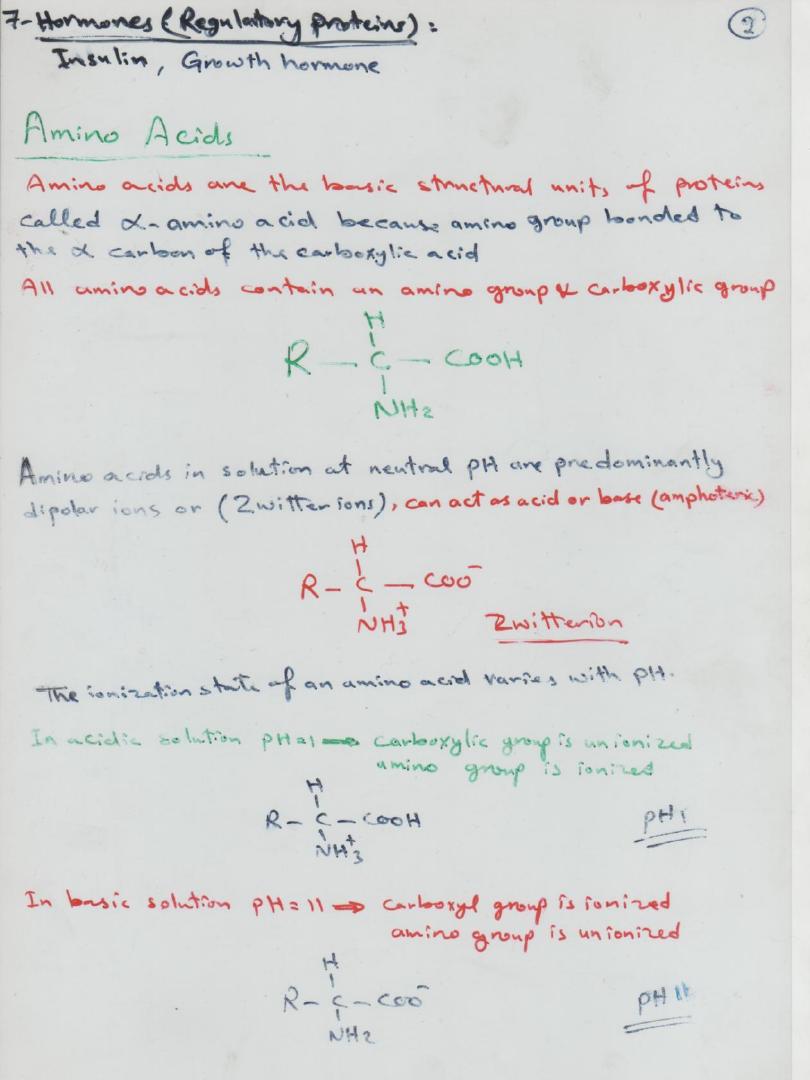 7-Hormones (Regulatory proteins):
2
Insulin, Growth hormone
Amino Acids
Amino acids are the basic structural units of proteins
called α-amino acid because amino group bonded to
the α carbon of the carboxylic acid
All amino acids contain an amino group & carboxylic group
H
R — C — COOH
NH2
Amino acids in solution at neutral pH are predominantly
dipolar ions or (Zwitter ions), can act as acid or base (amphoteric)
H
R — C — COO⁻
NH3⁺ Zwitterion
The ionization state of an amino acid varies with pH.
In acidic solution pH=1 ⇒ carboxylic group is unionized
amino group is ionized
H
R — C — COOH pH 1
NH3⁺
In basic solution pH=11 ⇒ carboxyl group is ionized
amino group is unionized
H
R — C — COO⁻ pH 11
NH2